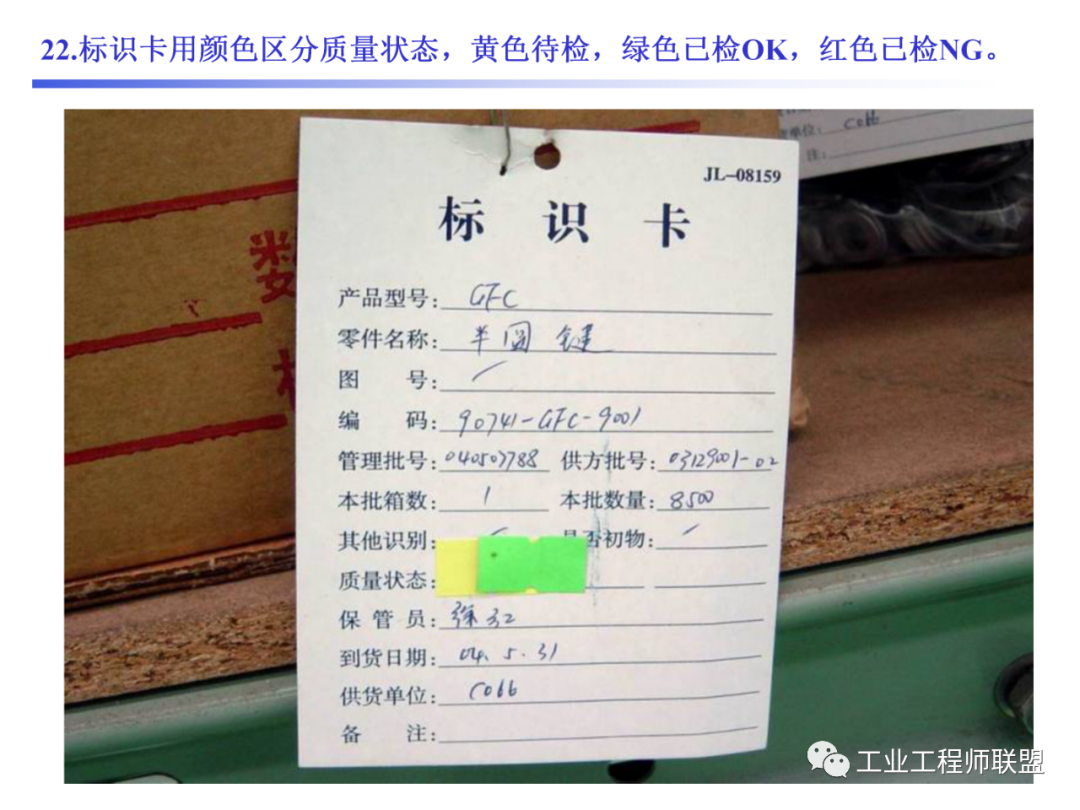 22.标识卡用颜色区分质量状态，黄色待检，绿色已检OK，红色已检NG。
单位： C066
注：
数
JL-08159
标 识 卡
产品型号： GFC
零件名称： 半圆键
图 号： /
编 码： 90741-GFC-9001
管理批号： 040503788 供方批号： 03129001-02
本批箱数： 1 本批数量： 8500
其他识别： / 是否初物： /
质量状态：
保管员：
到货日期： 04. 5. 31
供货单位： C066
备 注：
工业工程师联盟